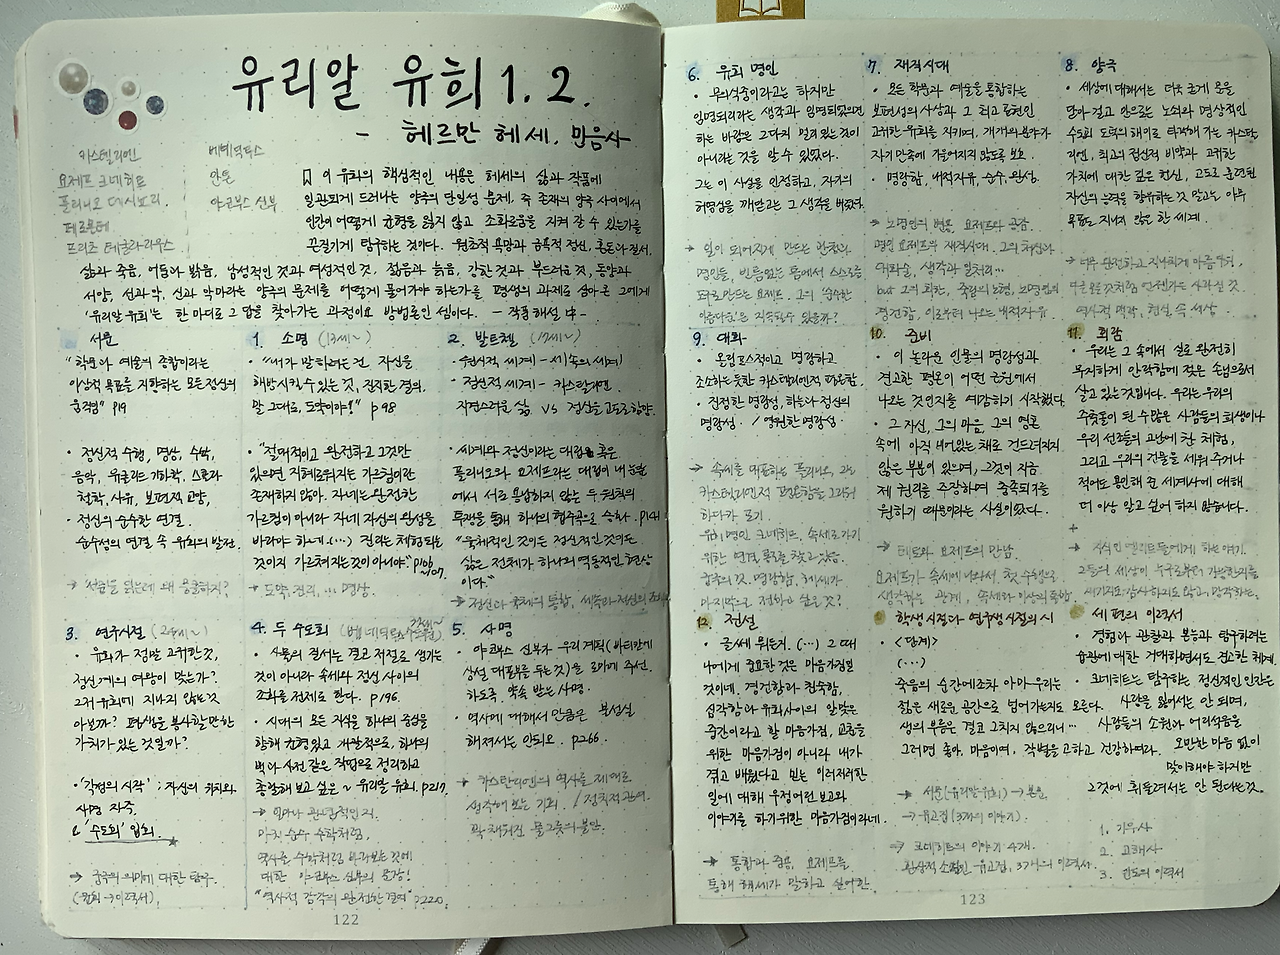 유리알 유희 1. 2.
- 헤르만 헤세. 민음사
카스텔리엔
요제프 크네히트
플리니오 데시뇨리.
테르몬테
프리츠 테굴라리우스
베네딕투스
안톤
야코부스 신부
이 유희의 핵심적인 내용은 헤세의 삶과 작품에
일관되게 드러나는 양극의 단일성 문제, 즉 존재의 양극 사이에서
인간이 어떻게 균형을 잃지 않고 조화로움을 지켜 갈 수 있는가를
끈질기게 탐구하는 것이다. 원초적 욕망과 금욕적 정신, 혼돈과 질서,
삶과 죽음, 어둠과 밝음, 남성적인 것과 여성적인 것, 젊음과 늙음, 강한 것과 부드러운 것, 동양과
서양, 선과 악, 신과 악마라는 양극의 문제를 어떻게 풀어가야 하는가를 평생의 과제로 삼아온 그에게
'유리알 유희'는 한 마디로 그 답을 찾아가는 과정이요 방법론인 셈이다. - 작품해설 中 -
서문
"학문과 예술의 종합이라는
이상적 목표를 지향하는 모든 정신의
움직임" p19
• 정신적 수행, 명상, 수학,
음악, 유클리드 기하학, 스콜라
철학, 사유, 보편적 교양,
• 정신의 순수한 연결.
순수성의 연결 속 유희의 발전.
→ 서문을 읽는데 왜 뭉클하지?
1. 소명 (13세~)
• "내가 말하려는 건 자신을
해방시킬 수 있는 것, 진지한 결의.
말 그대로, 도약이야!" p98
• "절대적이고 완전하고 그것만
있으면 지혜로워지는 가르침이란
존재하지 않아. 자네는 완전한
가르침이 아니라 자네 자신의 완성을
바라야 하네. (...) 진리는 체험되는
것이지 가르쳐지는 것이 아니야" p106
~107
→ 도약, 진리, ... 명상.
2. 발트첼 (17세~)
• 원시적 세계 - 세속의 세계
• 정신적 세계 - 카스탈리엔.
자연스러운 삶 vs 정신을 고도로 함양.
• 세계와 정신이라는 대립 혹은
플리니오와 요제프라는 대립이 내 눈앞
에서 서로 융합하지 않는 두 원칙의
투쟁을 통해 하나의 협주곡으로 승화. p141
"육체적인 것이든 정신적인 것이든
삶은 전체가 하나의 역동적인 현상
이다."
→ 정신과 육체의 통합, 세속과 정신의 조화
3. 연구시절 (24세~)
• 유희가 정말 고귀한 것,
정신계의 여왕이 맞는가?
그저 유희에 지나지 않는 것
아닐까? 평생을 봉사할 만한
가치가 있는 것일까?
• '각성의 시작' : 자신의 위치와
사명 자각.
'수도회' 입회.
4. 두 수도회
• 사물의 질서는 결코 저절로 생기는
것이 아니라 속세와 정신 사이의
조화를 전제로 한다. p196.
• 시대의 모든 지식을 하나의 중심을
향해 균형있고 개괄적으로, 하나의
백과사전 같은 작업으로 정리하고
총괄해 보고 싶은 ~ 유리알 유희. p217.
→ 얼마나 관념적인지.
마치 순수 수학처럼,
역사를 수학처럼 바라보는 것에
대한 야코부스 신부의 일갈!
"역사적 감각의 완전한 결여" p220.
5. 사명
• 야코부스 신부가 우리 계획(바티칸에
상설 대표부를 두는 것)을 로마에 주선.
하도록. 약속 받는 사명.
• 역사에 대해서 만큼은 불성실
해져서는 안되오. p266.
→ 카스탈리엔의 역사를 제대로
생각해 보는 기회. / 정치적 관여.
꽉 채워진 물그릇의 불안.
122
6. 유희 명인
• 무의식중이라고는 하지만
임명되리라는 생각과 임명되었으면
하는 바람은 그다지 멀지 있는 것이
아니라는 것을 알 수 있었다.
그는 이 사실을 인정하고, 자기의
허영심을 깨닫고는 그 생각을 버렸다.
→ 일이 되어지게 만드는 관찰과
명인들, 빈틈없는 틈에서 스스로를
도약으로 만드는 요제프. 그의 순수한
아름다움은 지속될 수 있을까?
7. 재직시대
• 모든 학문과 예술을 통합하는
보편성의 사상과 그 최고 표현인
고귀한 유희를 지키며, 개개의 분야가
자기만족에 기울어지지 않도록 보호.
• 명랑함, 내적자유, 순수, 완성.
→ 노명인의 변용, 요제프와 공감.
명인 요제프의 재직시대. 그의 처신과
대화술, 생각과 일처리...
but 그의 회한, 죽림의 노형, 노명인의
경건함, 이로부터 나오는 내적자유.
8. 양극
• 세상에 대해서는 더욱 굳게 문을
닫아 걸고 안으로는 노쇠와 명상적인
수도회 도덕의 해이로 타락해 가는 카스탈
리엔, 최고의 정신적 비약과 고귀한
가치에 대한 깊은 헌신, 고도로 훈련된
자신의 능력을 향유하는 것 말고는 아무
목표를 지니지 않은 한 세계.
→ 너무 완전하고 지나치게 아름다워,
역사적 맥락, 현실, 속 세상.
9. 대화
• 올림포스적이고 명랑하고
조소하는 듯한 카스텔리엔적 평온함.
• 진정한 명랑성, 하늘과 정신의
명랑성. / 영원한 명랑성.
→ 속세를 대표하는 플리니오, 그는
카스텔리엔적 평온함을 그리워
하다가 포기.
유희명인 크네히트, 속세로 가기
위한 연결 통로를 찾고 있음.
마지막으로 전하고 싶은 것?
10. 준비
• 이 놀라운 인물의 명랑성과
견고한 평온이 어떤 근원에서
나오는 것인지를 예감하기 시작했다.
• 그 자신, 그의 마음, 그의 영혼
속에 아직 비어있는 채로 건드려지지
않은 부분이 있으며, 그것이 지금
제 권리를 주장하며 충족되기를
원하기 때문이라는 사실이었다.
→ 티토와 요제프의 만남.
요제프가 속세에 나와서, 첫 수행으로
생각하는 관계, 속세와 이상의 융합.
11. 회람
• 우리는 그 속에서 실로 완전히
무지하게 안락함에 젖은 손님으로서
살고 있는 것입니다. 우리는 우리의
주춧돌이 된 수많은 사람들의 희생이나
우리 선조들의 고난에 찬 체험,
그리고 우리의 건물을 세워 주거나
적어도 용인해 준 세계사에 대해
더 이상 알고 싶어 하지 않습니다.
→ 지식인 엘리트들에게 하는 얘기.
그들의 세상이 누구로부터 가능한지를
12. 전설
• 글쎄 뭐든지. (...) 그 때
나에게 중요한 것은 마음가짐인
것이네. 경건함과 친숙함,
심각함과 유희사이의 알맞은
중간이라고 할 마음가짐, 교훈을
위한 마음가짐이 아니라 내가
겪고 배웠다고 믿는 이러저러한
일에 대해 우정어린 보고와
이야기를 하기 위한 마음가짐이라네.
→ 통합과 중용, 요제프를
통해 헤세가 말하고 싶어한.
학생시절과 연구생 시절의 시
• <단계>
(...)
죽음의 순간에조차 아마 우리는
젊은 새로운 공간으로 넘어가는지도 모른다.
생의 부름은 결코 그치지 않으리니...
그러면 좋아, 마음이여, 작별을 고하고 건강하여라.
→ 서문(유리알유희) → 본문.
→ 유고집 (3가의 이야기).
→ 크네히트의 이야기 4개.
환상적 소설인 유고집, 3개의 이력서.
세 편의 이력서
• 경험과 관찰과 본능과 탐구하려는
습관에 대한 거대하면서도 견고한 체계.
• 크네히트는 탐구하는 정신적인 인간은
사랑을 잃어서는 안 되며,
사람들의 소원과 어리석음을
오만한 마음 없이
맞이해야 하지만
그것에 휘둘려서는 안 된다는 것.
1. 기우사
2. 고해사
3. 인도의 이력서
123